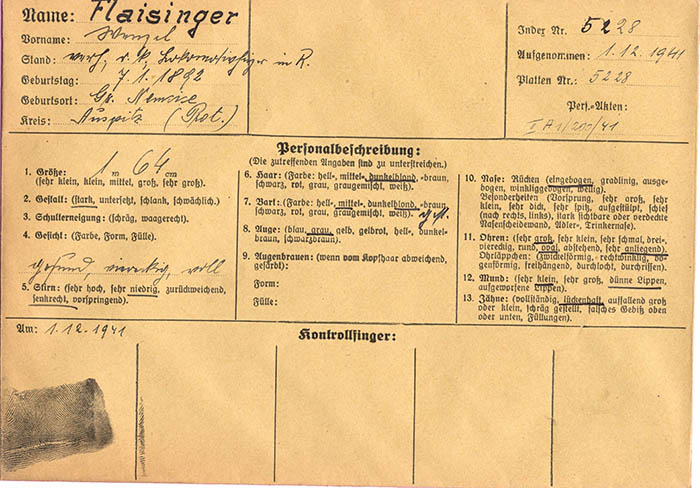 Name: Flaisinger
Vorname: Wenzel
Stand: verh., r. k., Lokomotivheizer in R.
Geburtstag: 7. 1. 1892
Geburtsort: Gr. Nemcice
Kreis: Auspitz (Prot.)
Index Nr. 5228
Aufgenommen: 1. 12. 1941
Platten Nr.: 5228
Pers.-Akten:
Personalbeschreibung:
(Die zutreffenden Angaben sind zu unterstreichen.)
1. Größe: 1 m 64 cm
(sehr klein, klein, mittel, groß, sehr groß).
2. Gestalt: (stark, untersetzt, schlank, schwächlich.)
3. Schulterneigung: (schräg, waagerecht.)
4. Gesicht: (Farbe, Form, Fülle.)
gesund, viereckig, voll
5. Stirn: (sehr hoch, sehr niedrig, zurückweichend,
senkrecht, vorspringend).
6. Haar: (Farbe: hell-, mittel-, dunkelblond, -braun,
schwarz, rot, grau, graugemischt, weiß).
7. Bart: (Farbe: hell-, mittel-, dunkelblond, -braun,
schwarz, rot, grau, graugemischt, weiß).
8. Auge: (blau, grau, gelb, gelbrot, hell-, dunkel-
braun, schwarzbraun).
9. Augenbrauen: (wenn vom Kopfhaar abweichend,
gefärbt):
Form:
Fülle:
10. Nase: Rücken (eingebogen, gradlinig, ausge-
bogen, winkliggebogen, wellig).
Besonderheiten (Vorsprung, sehr groß, sehr
klein, sehr dick, sehr spitz, aufgestülpt, schief
(nach rechts, links), stark sichtbare oder verdeckte
Nasenscheidewand, Adler-, Trinkernase).
11. Ohren: (sehr groß, sehr klein, sehr schmal, drei-,
viereckig, rund, oval, abstehend, sehr anliegend).
Ohrläppchen: (zwickelförmig, rechtwinklig, bo-
genförmig, freihängend, durchlocht, durchrissen).
12. Mund: (sehr klein, sehr groß, dünne Lippen,
aufgeworfene Lippen).
13. Zähne: (vollständig, lückenhaft, auffallend groß
oder klein, schräg gestellt, falsches Gebiß oben
oder unten, Füllungen).
Am: 1. 12. 1941
Kontrollfinger: